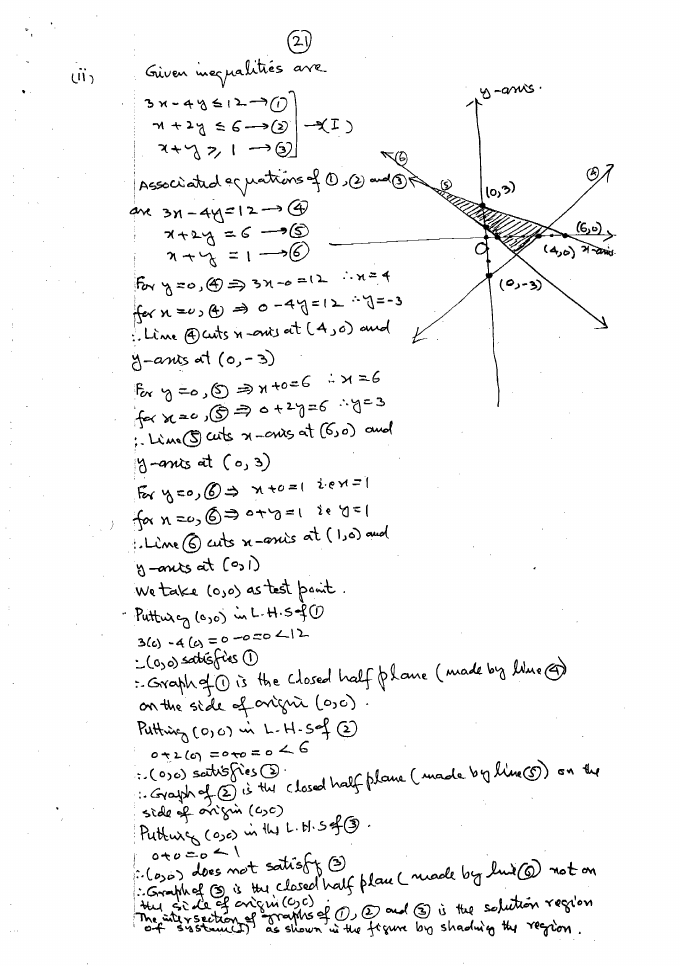 21
(ii) Given inequalities are
3x-4y≤12→①
x+2y≤6→②
x+y≥1→③
→(I)
Associated equations of ①,② and ③
are 3x-4y=12→④
x+2y=6→⑤
x+y=1→⑥
For y=0,④⇒3x-0=12 ∴x=4
for x=0,④⇒0-4y=12 ∴y=-3
∴Line ④ cuts x-axis at (4,0) and
y-axis at (0,-3)
For y=0,⑤⇒x+0=6 ∴x=6
for x=0,⑤⇒0+2y=6 ∴y=3
∴Line ⑤ cuts x-axis at (6,0) and
y-axis at (0,3)
For y=0,⑥⇒ x+0=1 i.e x=1
for x=0,⑥⇒0+y=1 ie y=1
∴Line ⑥ cuts x-axis at (1,0) and
y-axis at (0,1)
We take (0,0) as test point.
Putting (0,0) in L.H.S of ①
3(0)-4(0)=0-0=0<12
∴(0,0) satisfies ①
∴Graph of ① is the closed half plane (made by line ④)
on the side of origin (0,0).
Putting (0,0) in L.H.S of ②
0+2(0)=0+0=0<6
∴(0,0) satisfies ②.
∴Graph of ② is the closed half plane (made by line ⑤) on the
side of origin (0,0)
Putting (0,0) in the L.H.S of ③.
0+0=0<1
∴(0,0) does not satisfy ③
∴Graph of ③ is the closed half plane (made by line ⑥) not on
the side of origin (0,0).
The intersection of graphs of ①,② and ③ is the solution region
of system(I) as shown in the figure by shading the region.
y-axis.
⑥
⑤
④
(0,3)
(6,0)
O
(4,0)
x-axis
(0,-3)